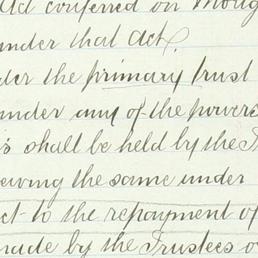 conferred on
under that act.
der the primary trust
under any of the powers
is shall be held by the
ewing the same under
ct to the repayment of
made by the Trustees o